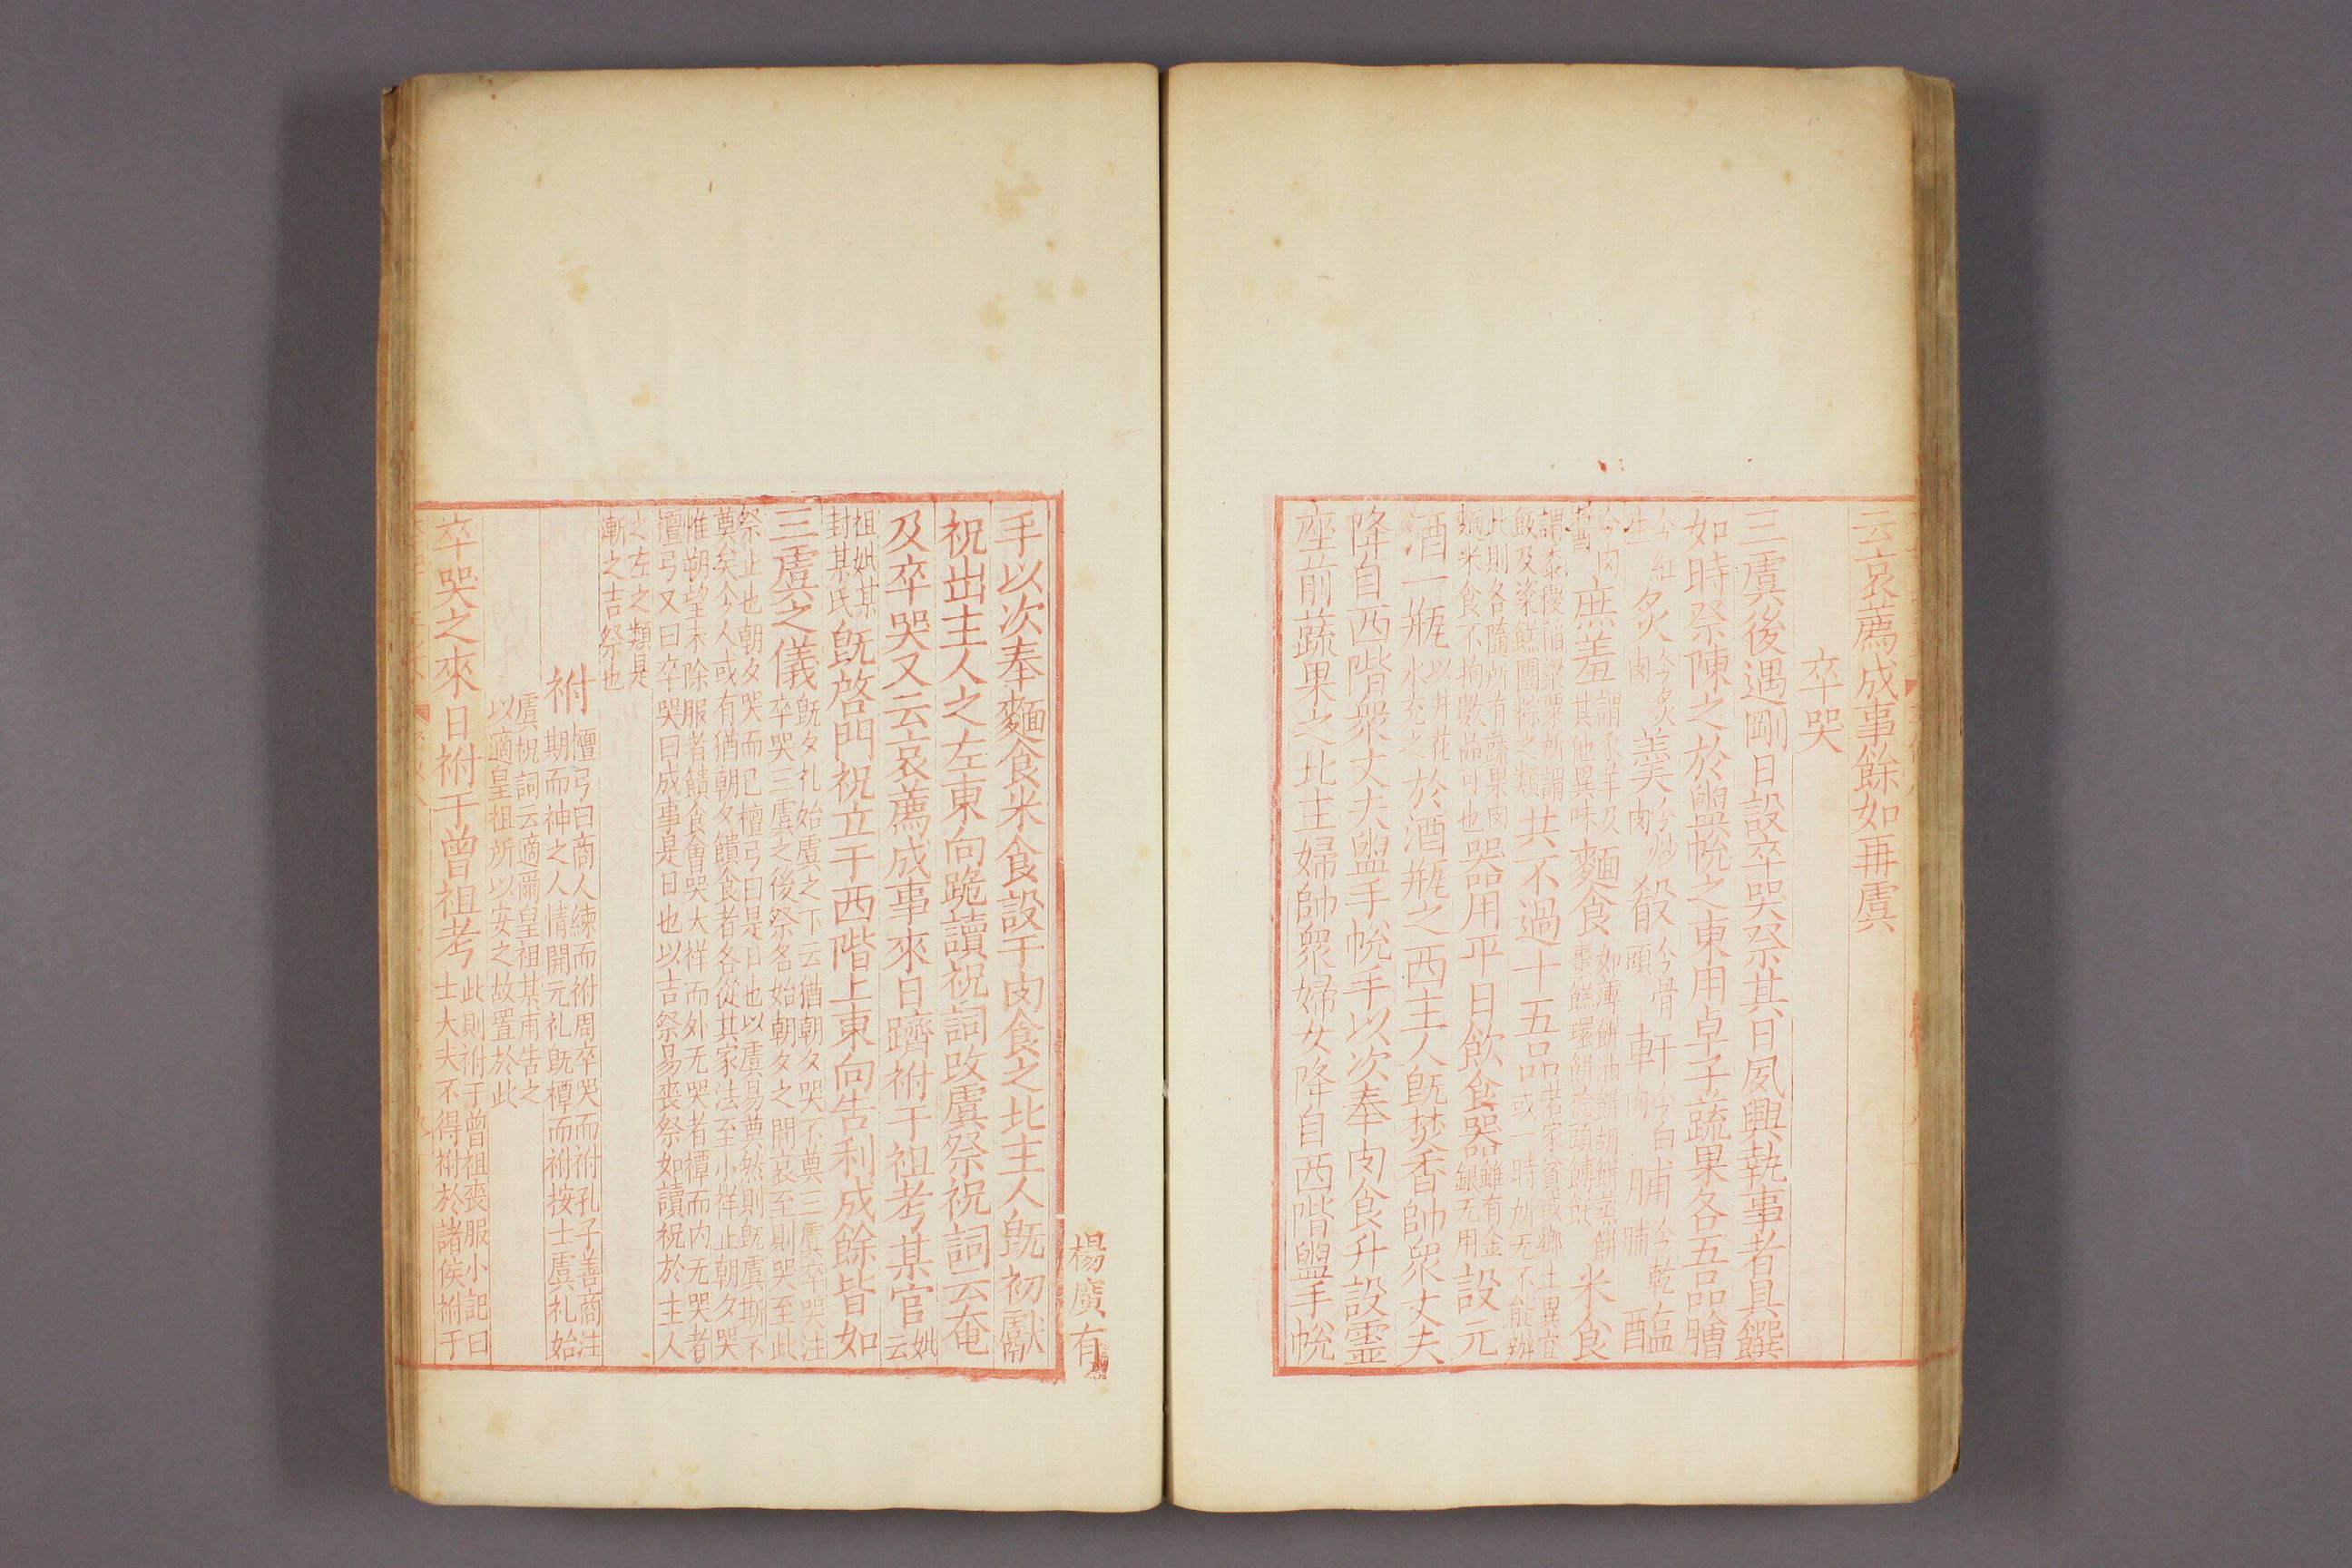 云哀薦成事餘如再虞
卒哭
三虞後遇剛日設卒哭祭其日夙興執事者具饌
如時祭陳之於盥帨之東用卓子蔬果各五品膾
今紅
生
炙
今炙
肉
羹
今炒
肉
殽
今骨
頭
軒
今白
肉
脯
今乾
脯
醢
今肉
醬
庶羞
謂豕羊及
其他異味
麵食
如薄餅油餅胡餅蒸餅
棗餻環餅捻頭餺飥
米食
謂黍稷稲粱粟所謂
飯及粢餻團粽之類
共不過十五品
若家貧或鄉土異宜
或一時所无不能辦
此則各隨所有蔬果肉
麵米食不拘數品可也
器用平日飲食器
雖有金
銀无用
設元
酒一瓶
以井花
水充之
於酒瓶之西主人旣焚香帥衆丈夫
降自西階衆丈夫盥手帨手以次奉肉食升設靈
座前蔬果之北主婦帥衆婦女降自西階盥手帨
手以次奉麵食米食設于肉食之北主人旣初獻
祝出主人之左東向跪讀祝詞改虞祭祝詞云奄
及卒哭又云哀薦成事來日躋祔于祖考某官
妣
云
祖妣某
封某氏
旣啓門祝立于西階上東向告利成餘皆如
三虞之儀
旣夕礼始虞之下云猶朝夕哭不奠三虞卒哭注
卒哭三虞之後祭名始朝夕之間哀至則哭至此
祭止也朝夕哭而已檀弓曰是日也以虞易奠然則旣虞斯不
奠矣今人或有猶朝夕饋食者各從其家法至小祥止朝夕哭
惟朔望未除服者饋食會哭大祥而外无哭者禫而内无哭者
檀弓又曰卒哭曰成事是日也以吉祭易喪祭如讀祝於主人
之左之類是
漸之吉祭也
祔
檀弓曰商人練而祔周卒哭而祔孔子善商注
期而神之人情開元礼旣禫而祔按士虞礼始
虞祝詞云適爾皇祖某甫告之
以適皇祖所以安之故置於此
卒哭之來日祔于曾祖考
此則祔于曾祖喪服小記曰
士大夫不得祔於諸侯祔于
楊廣有